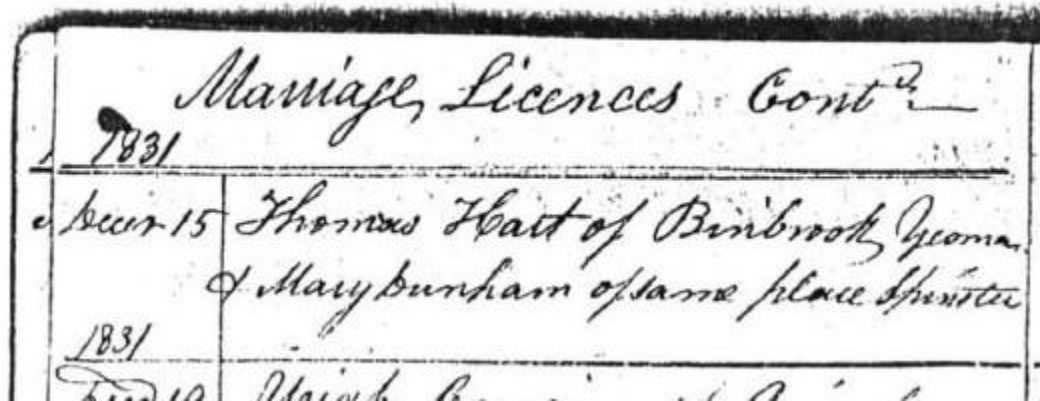 Marriage Licences Contd
1831
Decr 15 Thomas Hart of Binbrook, Yeoman
& Mary Dunham of same place Spinster
1831
19 Uriah